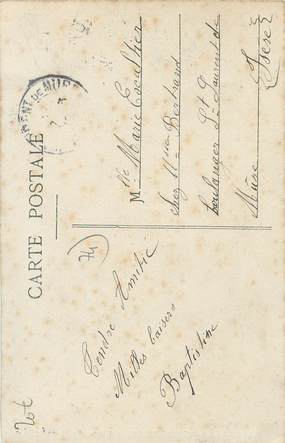 CARTE POSTALE
Mlle Marie Escallier
chez Mr Bertrand
boulanger St Laurent de
Mure Isère
Tendre Amitié
Milles baisers
Baptistine
74
20€